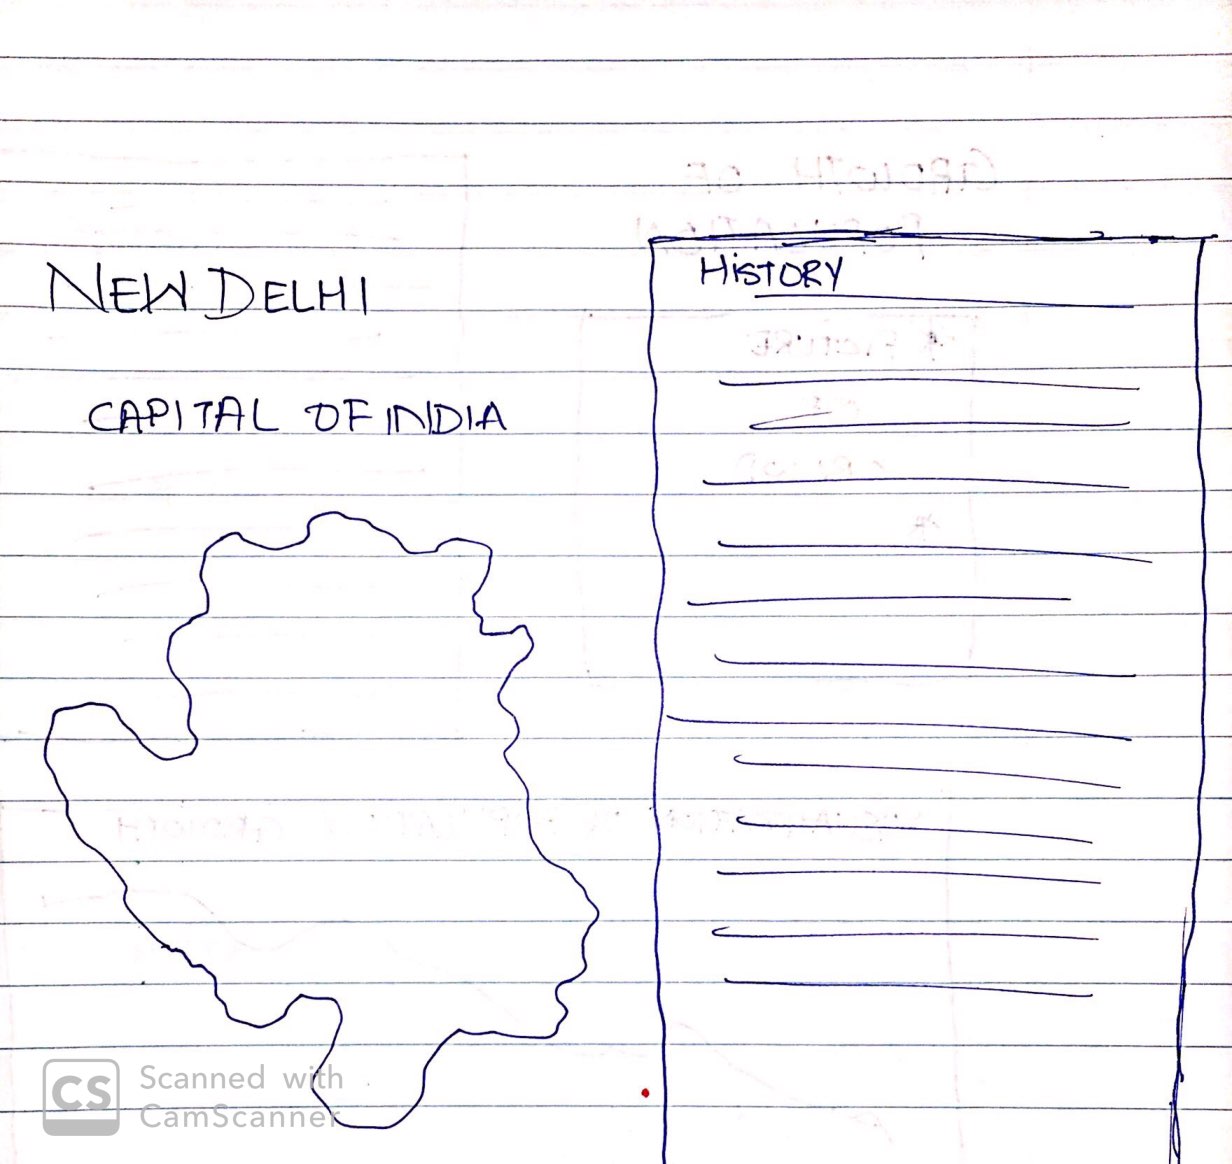 NEW DELHI
CAPITAL OF INDIA
HISTORY
CS Scanned with
CamScanner